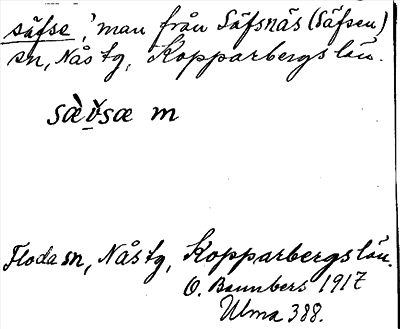 säfse, 'man från Säfsnäs (Säfsen)
sn, Nås tg, Kopparbergs län.
sæ̀v̆sæ m
Floda sn, Nås tg, Kopparbergs län.
O. Bannbers 1917
Ulma 388.